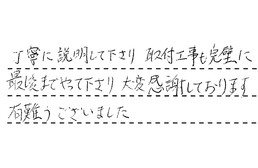 丁寧に説明して下さり 取付工事も完璧に
最後までやって下さり 大変感謝しております
有難うございました